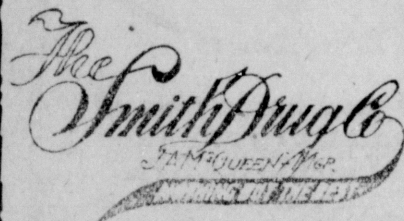 The
Smith Drug Co
J.A. McQUEEN, MGR.